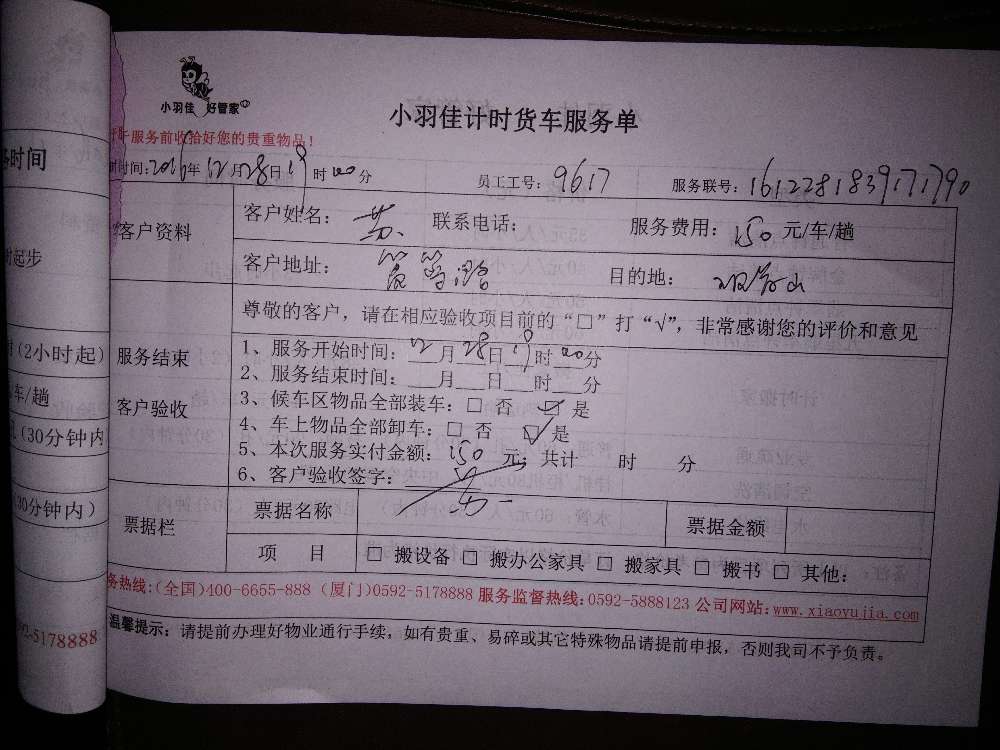 小羽佳 好管家
小羽佳计时货车服务单
服务前收拾好您的贵重物品！
时间：2016年12月28日19时00分 员工工号：9617 服务联号：1612281839171790
客户资料
客户姓名： 联系电话： 服务费用：150元/车/趟
客户地址： 筼筜路 目的地：
服务结束
客户验收
尊敬的客户，请在相应验收项目前的“□”打“√”，非常感谢您的评价和意见
1、服务开始时间：12月28日19时00分
2、服务结束时间：___月___日___时___分
3、候车区物品全部装车：□ 否 ☑ 是
4、车上物品全部卸车：□ 否 ☑ 是
5、本次服务实付金额：150 元；共计 时 分
6、客户验收签字：
票据栏
票据名称 票据金额
项 目 □ 搬设备 □ 搬办公家具 □ 搬家具 □ 搬书 □ 其他：
务热线：(全国)400-6655-888 (厦门)0592-5178888 服务监督热线：0592-5888123 公司网站：www.xiaoyujia.com
温馨提示：请提前办理好物业通行手续，如有贵重、易碎或其它特殊物品请提前申报，否则我司不予负责。
时间
起步
(2小时起)
车/趟
(30分钟内
30分钟内)
92-5178888